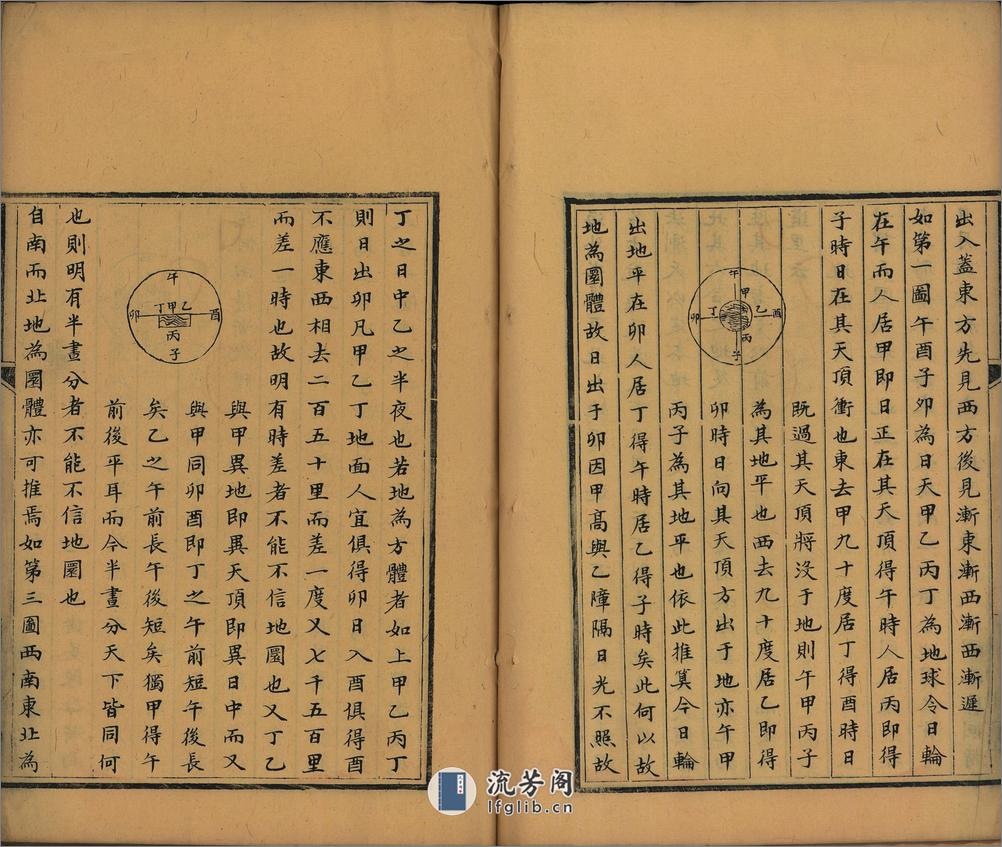 出入蓋東方先見西方後見漸東漸西漸西漸遲
如第一圖午酉子卯為日天甲乙丙丁為地球令日輪
在午而人居甲即日正在其天頂得午時人居丙即得
子時日在其天頂衝也東去甲九十度居丁得酉時日
既過其天頂將沒于地則午甲丙子
為其地平也西去九十度居乙即得
卯時日向其天頂方出于地亦午甲
丙子為其地平也依此推算令日輪
出地平在卯人居丁得午時居乙得子時矣此何以故
地為圜體故日出于卯因甲高與乙障隔日光不照故
午
甲
乙
酉
丁
卯
丙
子
丁之日中乙之半夜也若地為方體者如上甲乙丙丁
則日出卯凡甲乙丁地面人宜俱得卯日入酉俱得酉
不應東西相去二百五十里而差一度又七千五百里
而差一時也故明有時差者不能不信地圜也又丁乙
與甲異地即異天頂即異日中而又
與甲同卯酉即丁之午前短午後長
矣乙之午前長午後短矣獨甲得午
前後平耳而今半晝分天下皆同何
也則明有半晝分者不能不信地圜也
自南而北地為圜體亦可推焉如第三圖西南東北為
午
丁甲乙
酉
卯
丙
子
流芳阁
lfglib.cn